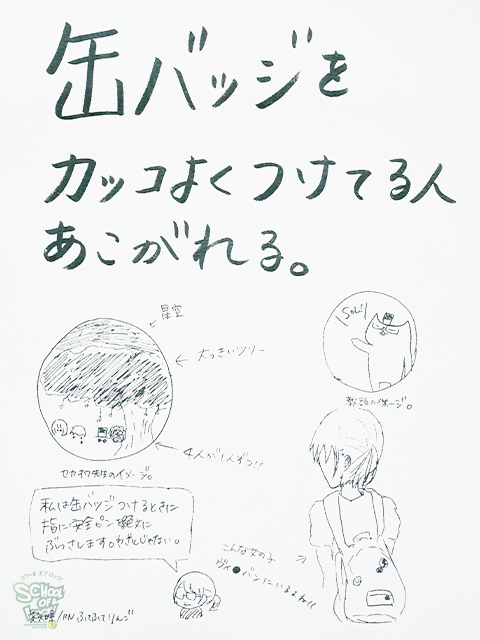 缶バッジを
カッコよくつけてる人
あこがれる。
星空
大っきいツリー
SOL!
教頭のイメージ。
4人が1人ずつ!!
セカオワ先生のイメージ。
私は缶バッジつけるときに
指に安全ピンを絶対に
ぶっさします。わざとじゃない。
こんな女の子
SCHOOL OF LOCK!
/RN ふてふてりんご